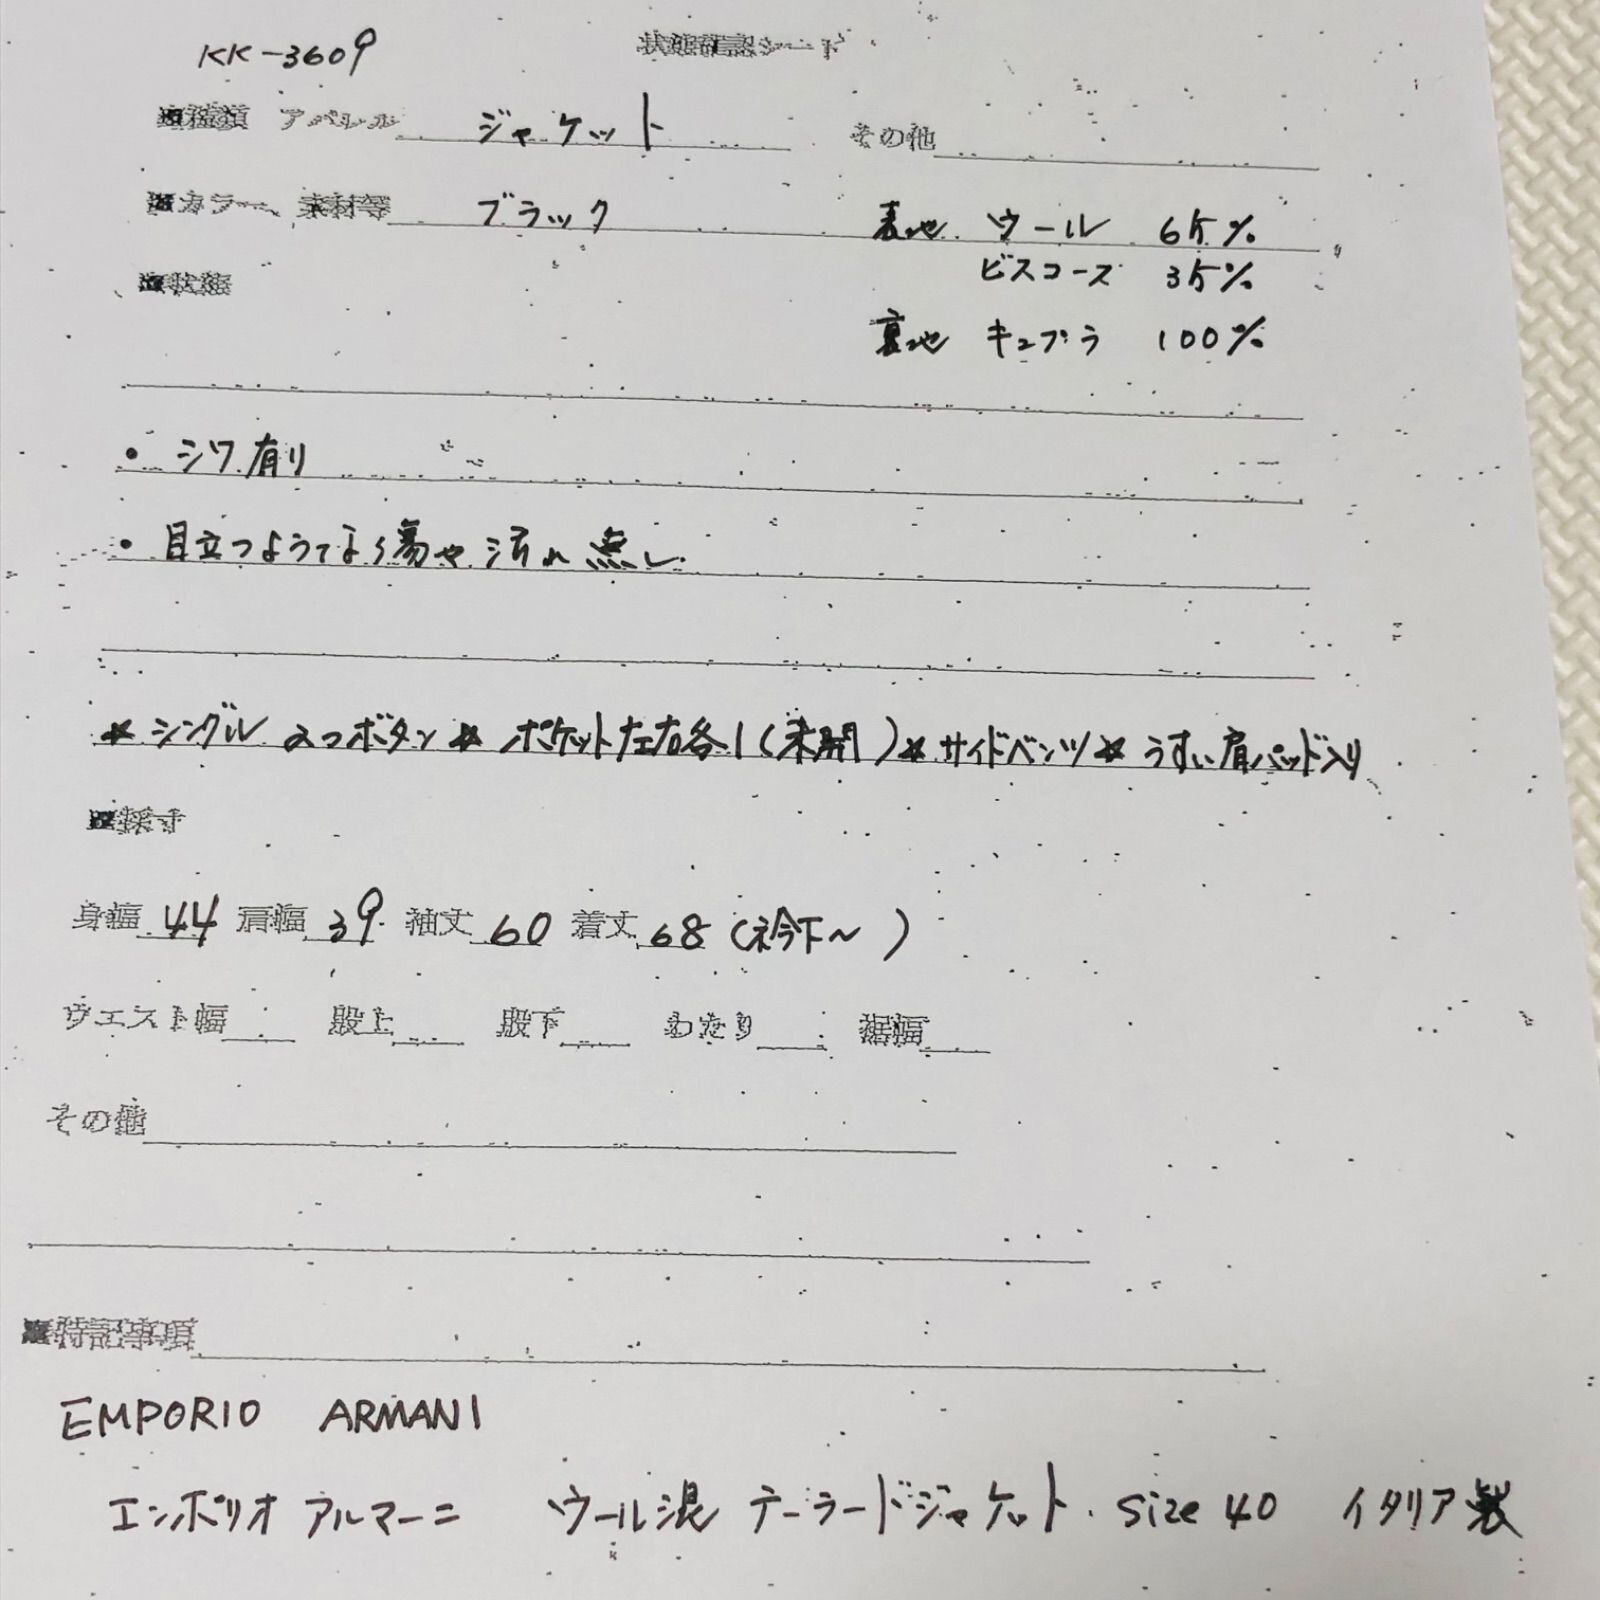 KK-3609 状態確認シート
■種類 アパレル ジャケット その他
■カラー、素材等 ブラック 表地 ウール 65%
ビスコース 35%
■状態
裏地 キュプラ 100%
・シワ有り
・目立つような傷や汚れ無し
* シングル 2つボタン * ポケット左右各1(未開) * サイドベンツ * うすい肩パッド入り
■採寸
身幅 44 肩幅 39 袖丈 60 着丈 68 (衿下~ )
ウエスト幅 股上 股下 わたり 裾幅
その他
■特記事項
EMPORIO ARMANI
エンポリオ アルマーニ ウール混 テーラードジャケット. size 40 イタリア製